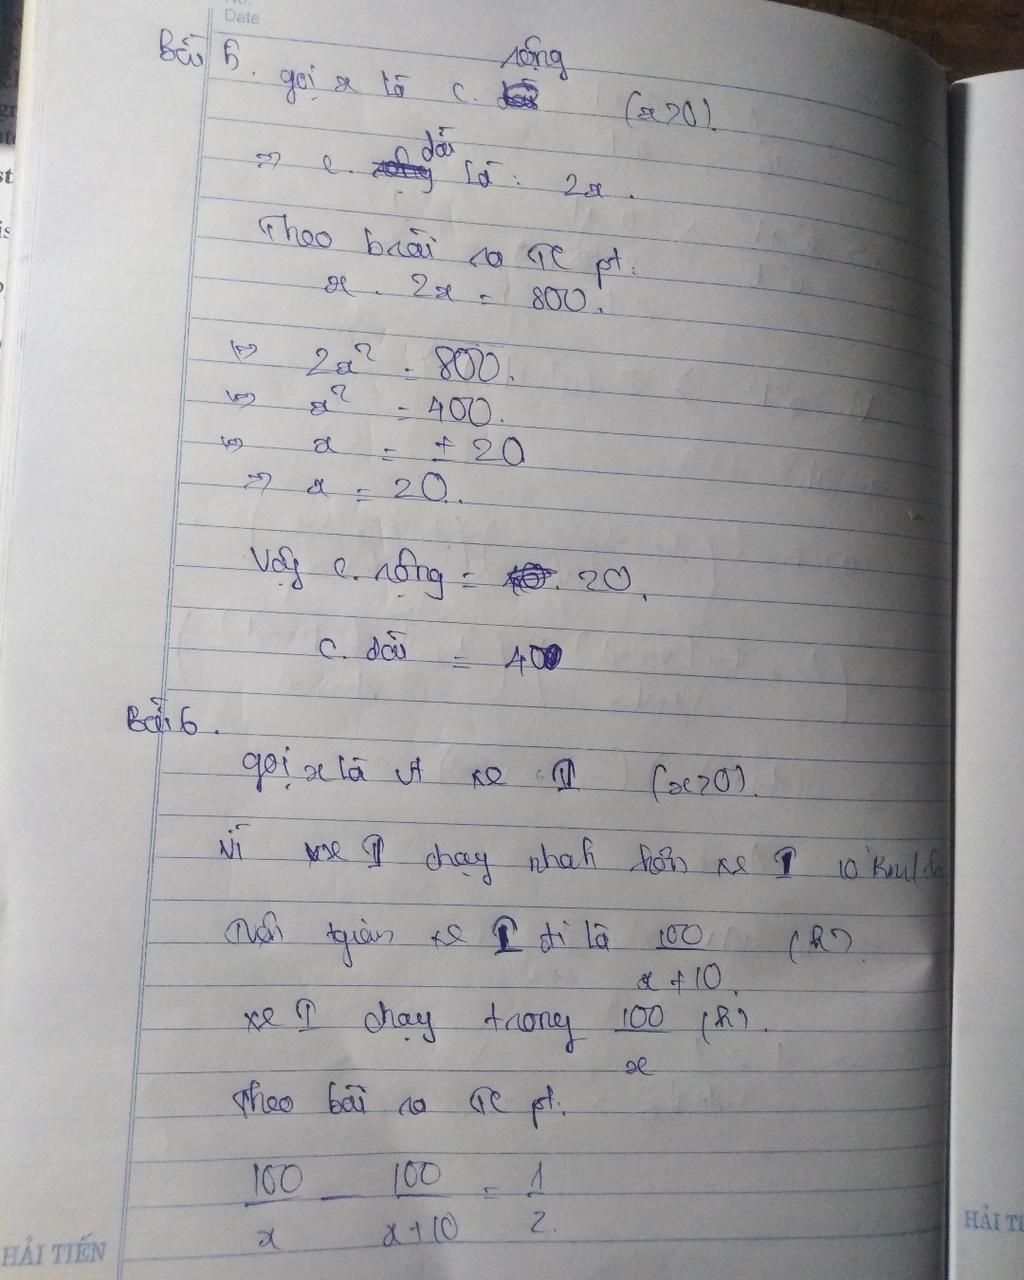 Date
Bài 5. gọi x là c. rộng (x>0).
=> c. dài là : 2x.
Theo bài ra TC pt:
x . 2x = 800.
<=> 2x² = 800.
<=> x² = 400.
<=> x = ± 20
=> x = 20.
Vậy c. rộng = 20.
c. dài = 40
Bài 6.
gọi x là vt xe II (x>0).
Vì xe I chạy nhah hơn xe II 10 km/h
Nên tgian xe I đi là 100/x+10. (h)
xe II chạy trong 100/x (h).
Theo bài ra TC pt:
100/x - 100/x+10 = 1/2.
HẢI TIẾN
HẢI TI